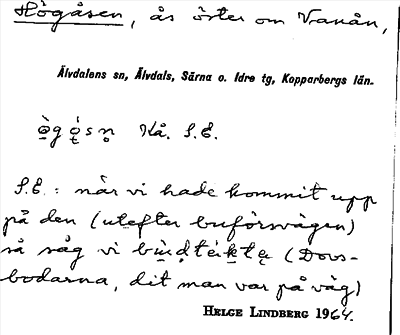 Högåsen, ås öster om Vanån,
Älvdalens sn, Älvdals, Särna o. Idre tg, Kopparbergs län.
Kå. S.E.
S.E.: när vi hade kommit upp
på den (utefter buförsvägen)
så såg vi (Dovs-
bodarna, dit man var på väg)
HELGE LINDBERG 1964.